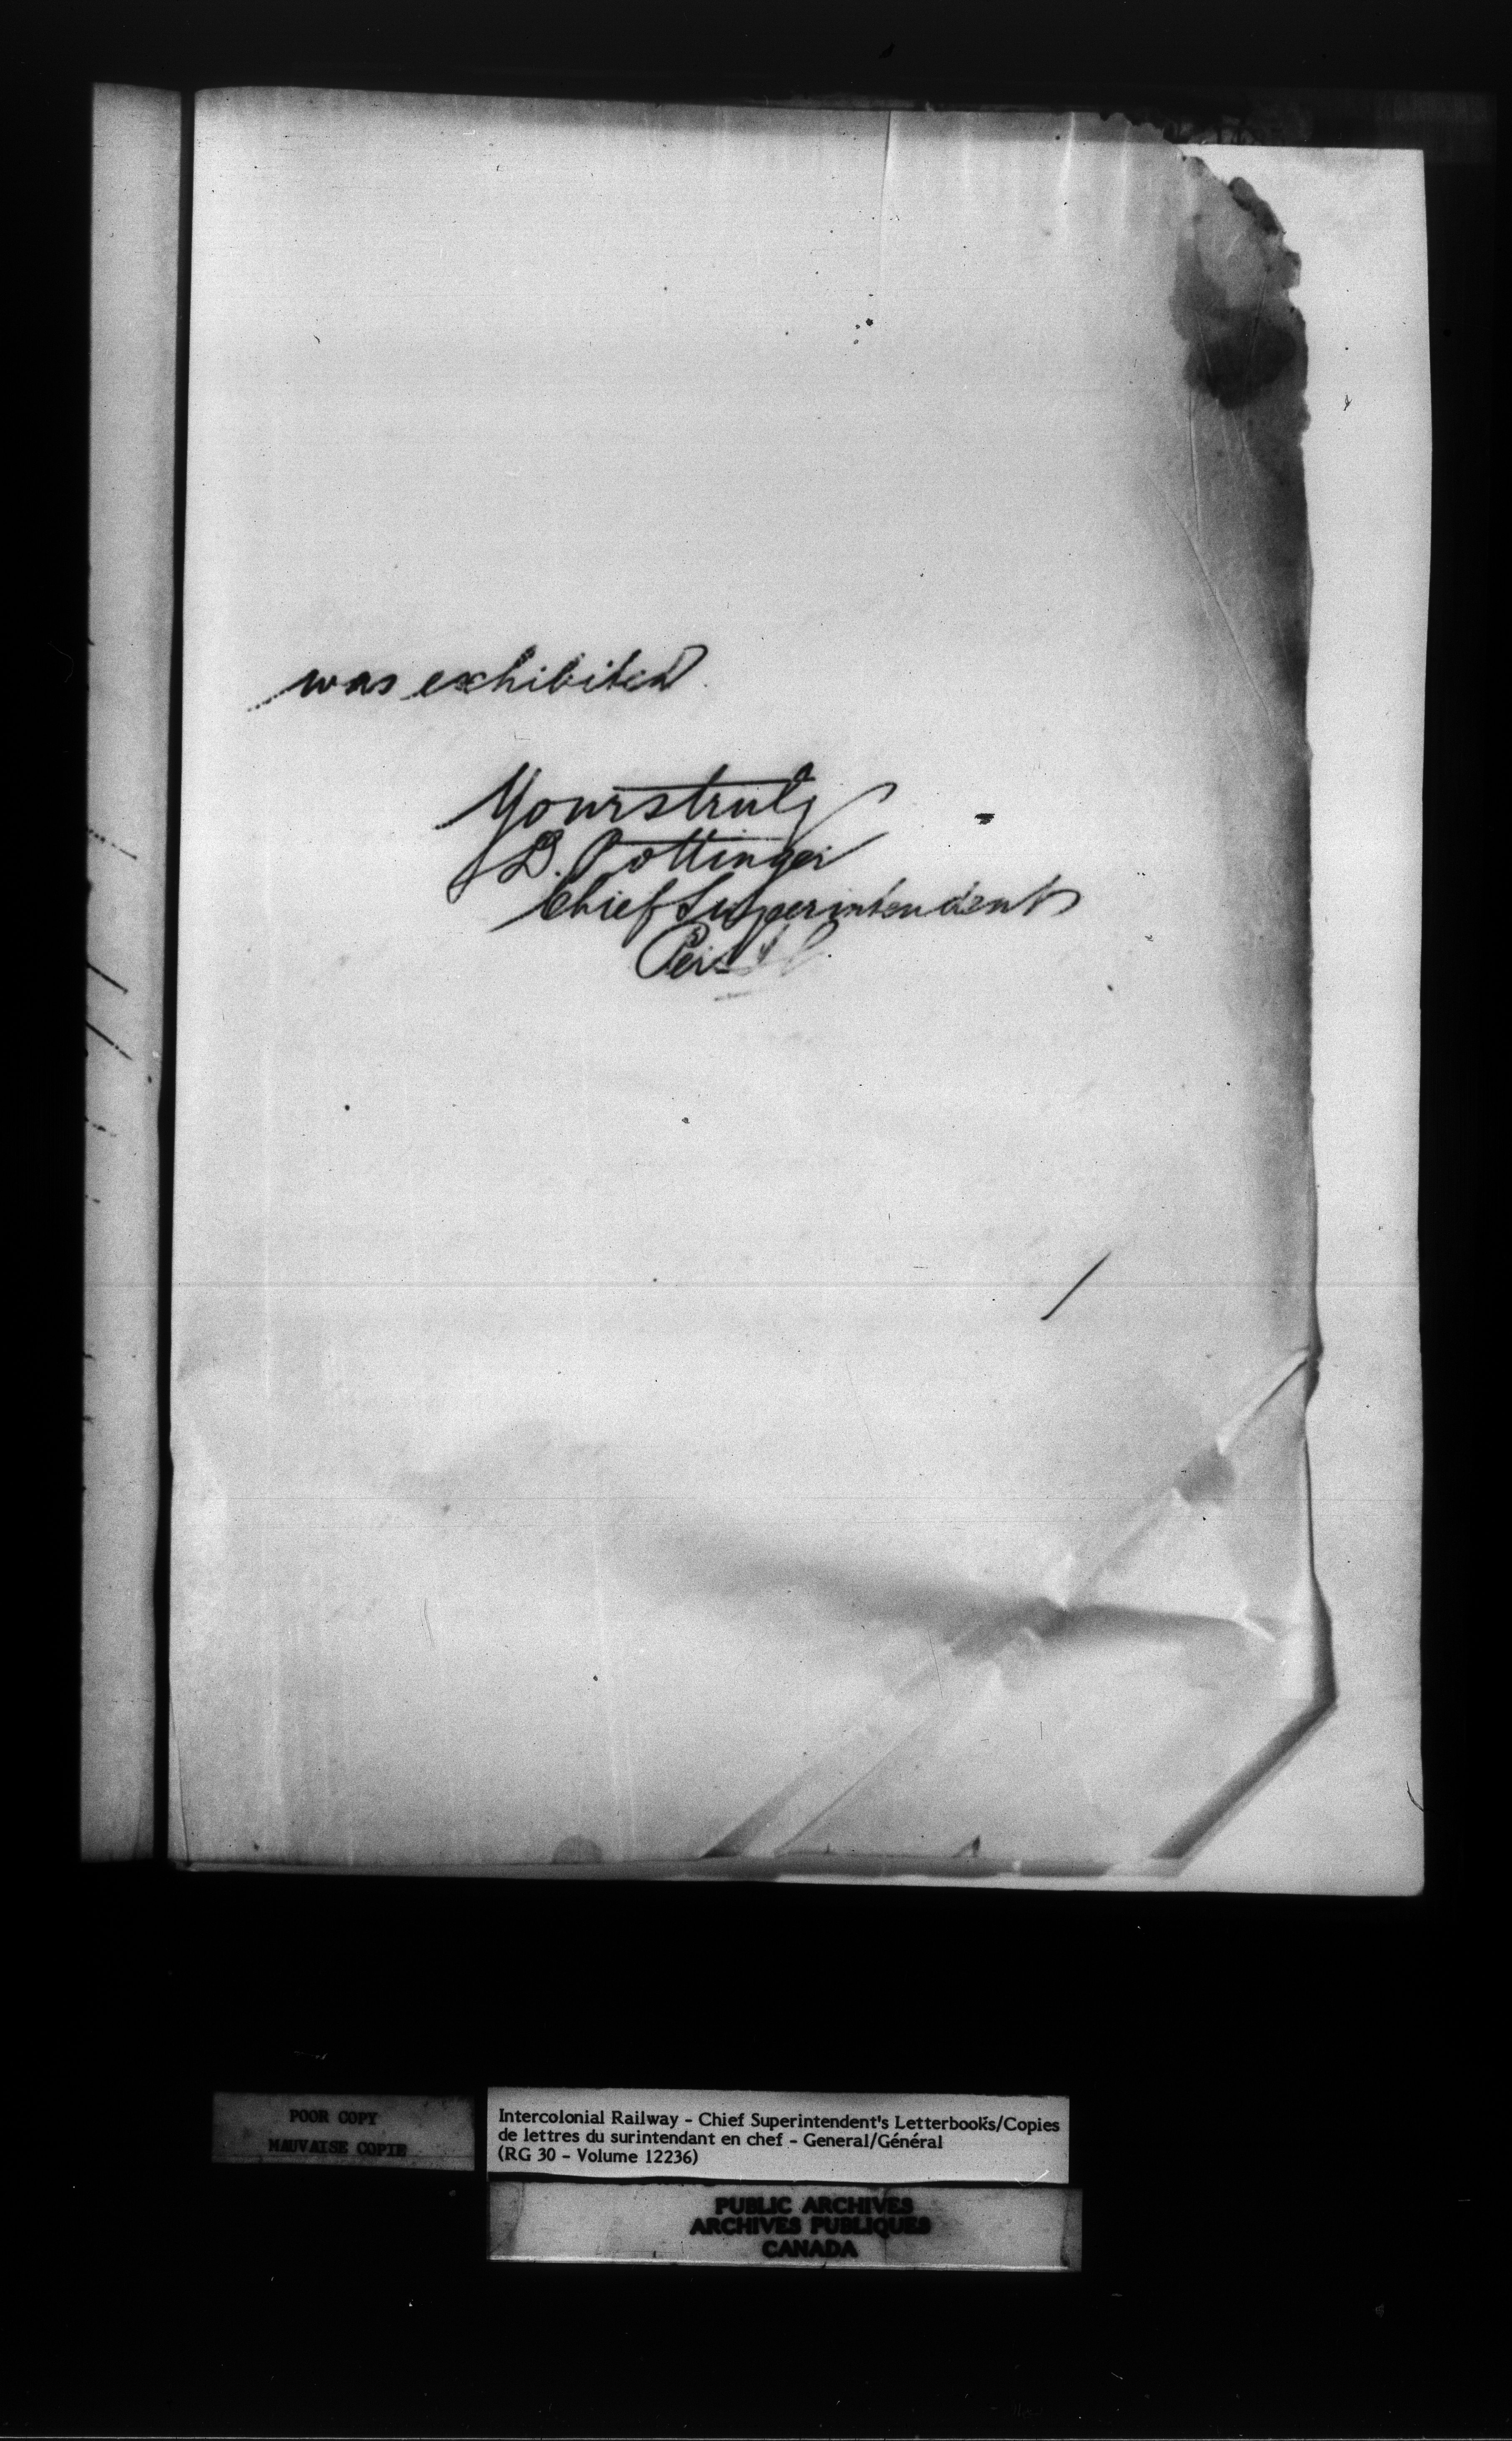 was exhibited
Yours truly
D. Pottinger
Chief Superintendent
Per
POOR COPY
MAUVAISE COPIE
Intercolonial Railway - Chief Superintendent's Letterbooks/Copies
de lettres du surintendant en chef - General/Général
(RG 30 - Volume 12236)
PUBLIC ARCHIVES
ARCHIVES PUBLIQUES
CANADA